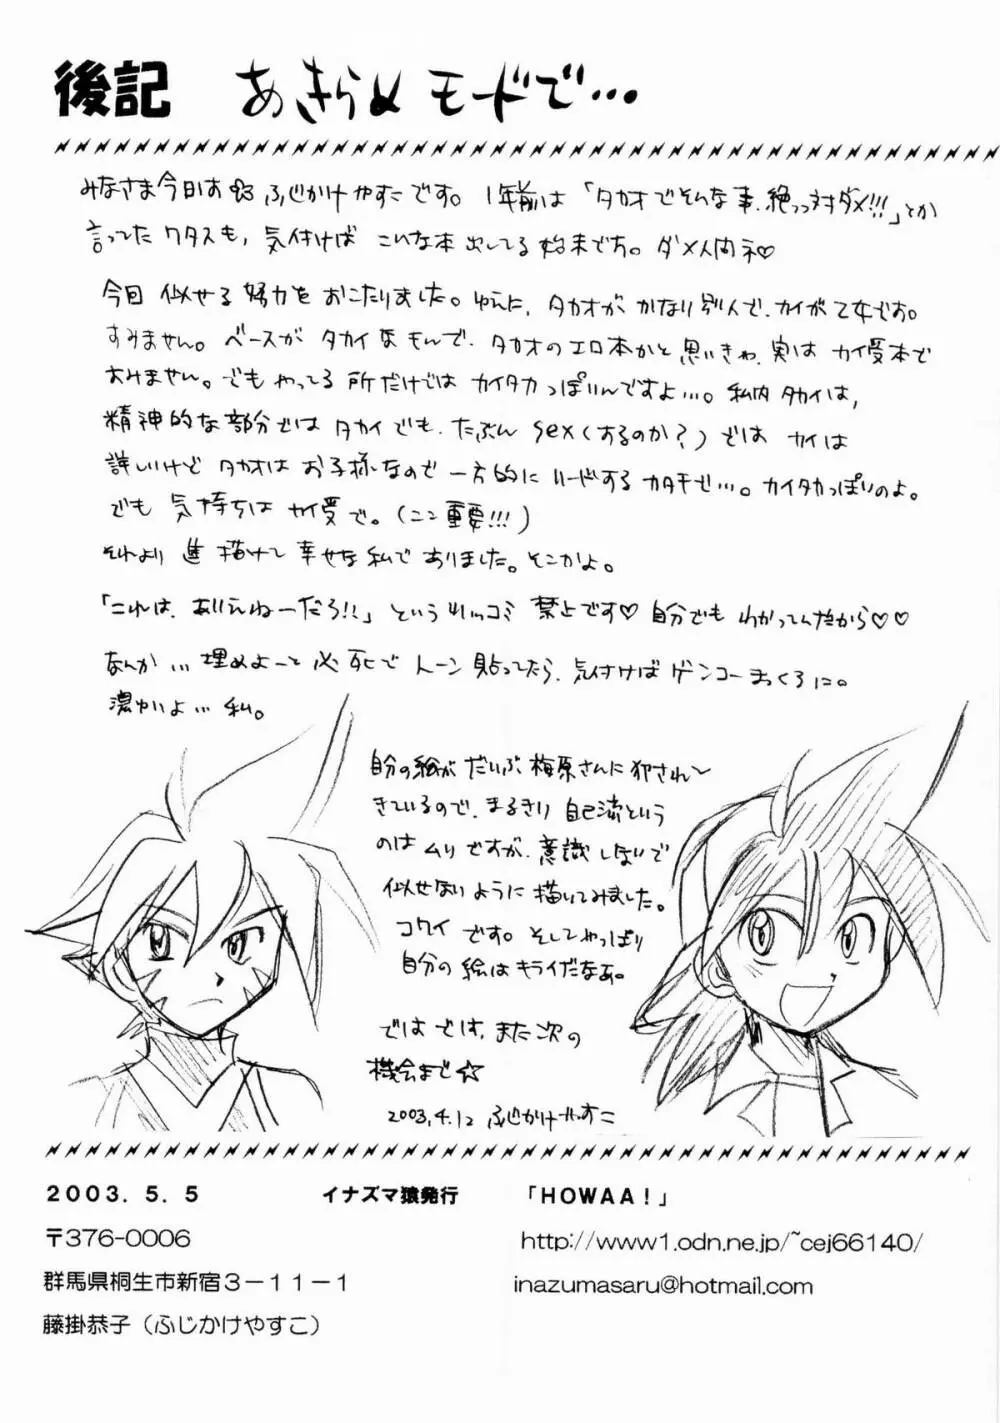 後記 あきらめモードで…
みなさま今日お ふじかけやすこです。1年前は「タカオでそんな事、絶っっ対ダメ!!!」とか
言ってたワタスも、気付けば こんな本出してる始末です。ダメ人間ネ♡
今回 似せる努力を おこたりました。ゆえに、タカオが かなり別人で、カイが乙女です。
すみません。ベースが タカイなもんで、タカオのエロ本かと思いきや、実は カイ受本で
すみません。でも やってる 所だけでは カイタカっぽいんですよ…。私内 タカイは、
精神的な部分では タカイでも、たぶん sex(するのか?)では カイは
詳しいけど タカオは お子様なので 一方的に リードする カタチで…。カイタカっぽいのよ。
でも 気持ちは カイ受で。(ここ 重要!!!)
それより 進 描けて 幸せな 私で ありました。そこかよ。
「これは、ありえねーだろ!!」という ツッコミ 禁止です♡ 自分でも わかってんだから♡♡
なんか… 埋めよーと 必死で トーン 貼ってたら、気付けば ゲンコー まっくろに。
濃かいよ… 私。
自分の絵が だいぶ 梅原さんに 犯されて
きているので、まるきり 自己流という
のは ムリですが、意識しないで
似せないように 描いてみました。
コワイ です。そして やっぱり
自分の 絵は キライだなあ。
では では、また 次の
機会まで☆
2003.4.12 ふじかけやすこ
2003.5.5 イナズマ猿発行 「HOWAA!」
〒376-0006 http://www1.odn.ne.jp/~cej66140/
群馬県桐生市新宿3-11-1 inazumasaru@hotmail.com
藤掛恭子(ふじかけやすこ)